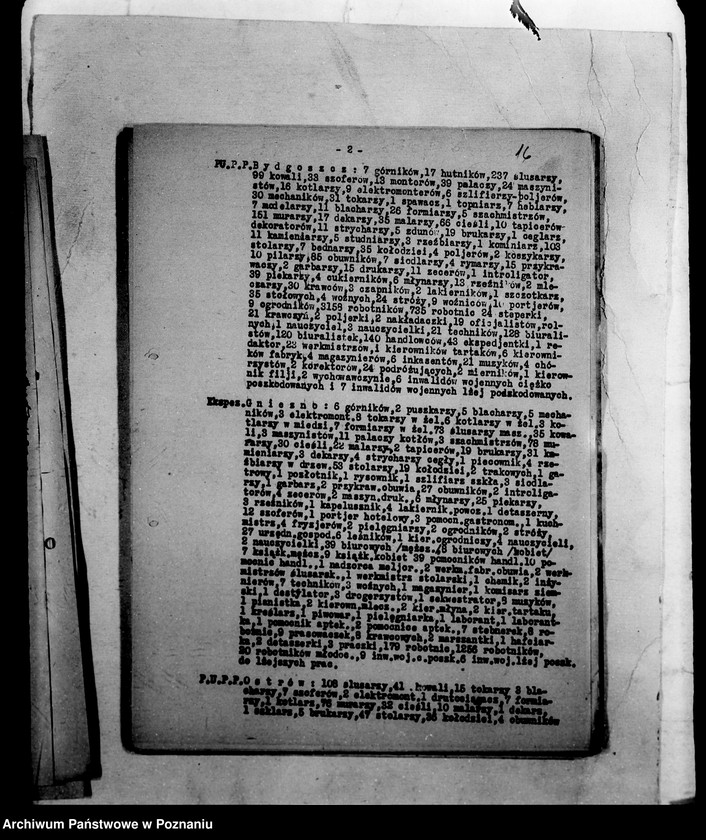 - 2 -
16
PU.P.P.Bydgoszcz: 7 górników,17 hutników,237 ślusarzy,
99 kowali,33 szoferow,13 monterów,39 palaczy,24 maszyni-
stów,16 kotlarzy,9 elektromonterów,6 szlifierzy-poljerów,
30 mechaników,31 tokarzy,1 spawacz,1 topniarz,7 heblarzy,
7 modelarzy,11 blacharzy,26 formiarzy,5 szachmistrzów,
151 murarzy,17 dekarzy,35 malarzy,66 cieśli,10 tapicerów-
dekoratorów,11 strycharzy,5 zdunów,19 brukarzy,1 ceglarz,
11 kamieniarzy,5 studniarzy,3 rzeźbiarzy,1 kominiarz,103
stolarzy,7 bednarzy,35 kołodziei,4 poljerów,2 koszykarzy,
10 pilarzy,65 obuwników,7 siodlarzy,4 rymarzy,15 przykra-
waczy,2 garbarzy,15 drukarzy,11 zecerów,1 introligator,
39 piekarzy,4 cukierników,6 młynarzy,13 rzeźników,2 mle-
czarzy,30 krawców,3 czapników,2 lakierników,1 szczotkarz,
35 stołowych,4 woźnych,24 stróży,9 woźniców, portjerów,
9 ogrodników,3158 robotników,735 robotnic 24 steperki,
21 krawczyń,2 poljerki,2 nakładaczki,19 oficjalistów,rol-
nych,1 nauczyciel,3 nauczycielki,21 techników,128 biurali-
stów,120 biuralistek,140 handlowców,43 ekspedjentki,1 re-
daktor,23 werkmistrzów,1 kierowników tartaków,6 kierowni-
ków fabryk,4 magazynierów,6 inkasentów,21 muzyków,4 chó-
rzystów,2 korektorów,24 podróżujących,2 mierników,1 kierow-
nik filji,2 wychowawczynie,6 inwalidów wojennych ciężko
poszkodowanych i 7 inwalidów wojennych lżej podszkodowanych.
Ekspoz.Gniezno: 6 górników,2 puszkarzy,5 blacharzy,5 mecha-
ników,3 elektromont.8 tokarzy w żel.6 kotlarzy w żel.3 ko-
tlarzy w miedzi,7 formiarzy w żel.73 ślusarzy masz.,35 kowa-
li,3 maszynistów,11 palaczy kotłów,3 szachmistrzów,78 mu-
rarzy,30 cieśli,22 malarzy,2 tapicerów,19 brukarzy,31 ka-
mieniarzy,3 dekarzy,4 strycharzy cegły,1 piecownik,4 rze-
źbiarzy w drzew.53 stolarzy,19 kołodziei,2 trakowych,1 ga-
trowy,1 pozłotnik,1 rysownik,1 szlifiarz szkła,3 siodla-
rzy,1 garbarz,2 przykraw.obuwia,27 obuwników,2 introliga-
torów,4 zecerow,2 maszyn.druk.,6 młynarzy,25 piekarzy,
3 rzeźników,1 kapelusznik,4 lakiernik.powoz.,1 detaszerny,
12 szoferów,1 portjer hotelowy,3 pomocn.gastronom.,1 kuch-
mistrz,4 fryzjerów,2 pielęgniarzy,2 ogrodników,2 stróży
27 urzędn.gospod.6 leśników,1 kier.ogrodniczy,4 nauczycieli,
2 nauczycielki,39 biurowych /mężcz.48 biurowych /kobiet/
7 książk.mężcz.9 książk.kobiet 39 pomocników handl.10 po-
mocnic handl.,1 nadzorca meljor.,2 werkm.fabr.obuwia,2 werk-
mistrzów ślusarsk.,1 werkmistrz stolarski,1 chemik,2 inży-
nierów,7 techników,3 woźnych,1 magazynier,1 komisarz ziem-
ski,1 destylator,3 drogerzystów,1 sekwestrator,8 muzyków,
1 pianistka,2 kierown.mlecz.,2 kier.młyna,2 kier.tartaku,
1 kreślarz,1 piwowar,1 pielęgniarka,1 laborant,1 laborant-
ka,1 pomocnik aptek.,2 pomocnice aptek.,7 stebnarek,8 ro-
botnic,9 prasowaczek,8 krawcowych,2 marszantki,1 hafciar-
ka,2 detaszerki,3 praczki,179 robotnic,1256 robotników,
20 robotników młodoc.,9 inw.woj.c.poszk.6 inw.woj.lżej poszk.
do lżejszych prac.
P.U.P.P.Ostrów: 108 ślusarzy,41 kowali,15 tokarzy 8 bla-
charzy,7 szoferów,2 elektromont.1 drutociągacz,7 formia-
rzy,1 kotlarz,76 murarzy,32 cieśli,10 malarzy,1 dekarz,
1 szklarz,5 brukarzy,47 stolarzy,36 kołodziei,4 obuwników
Archiwum Państwowe w Poznaniu